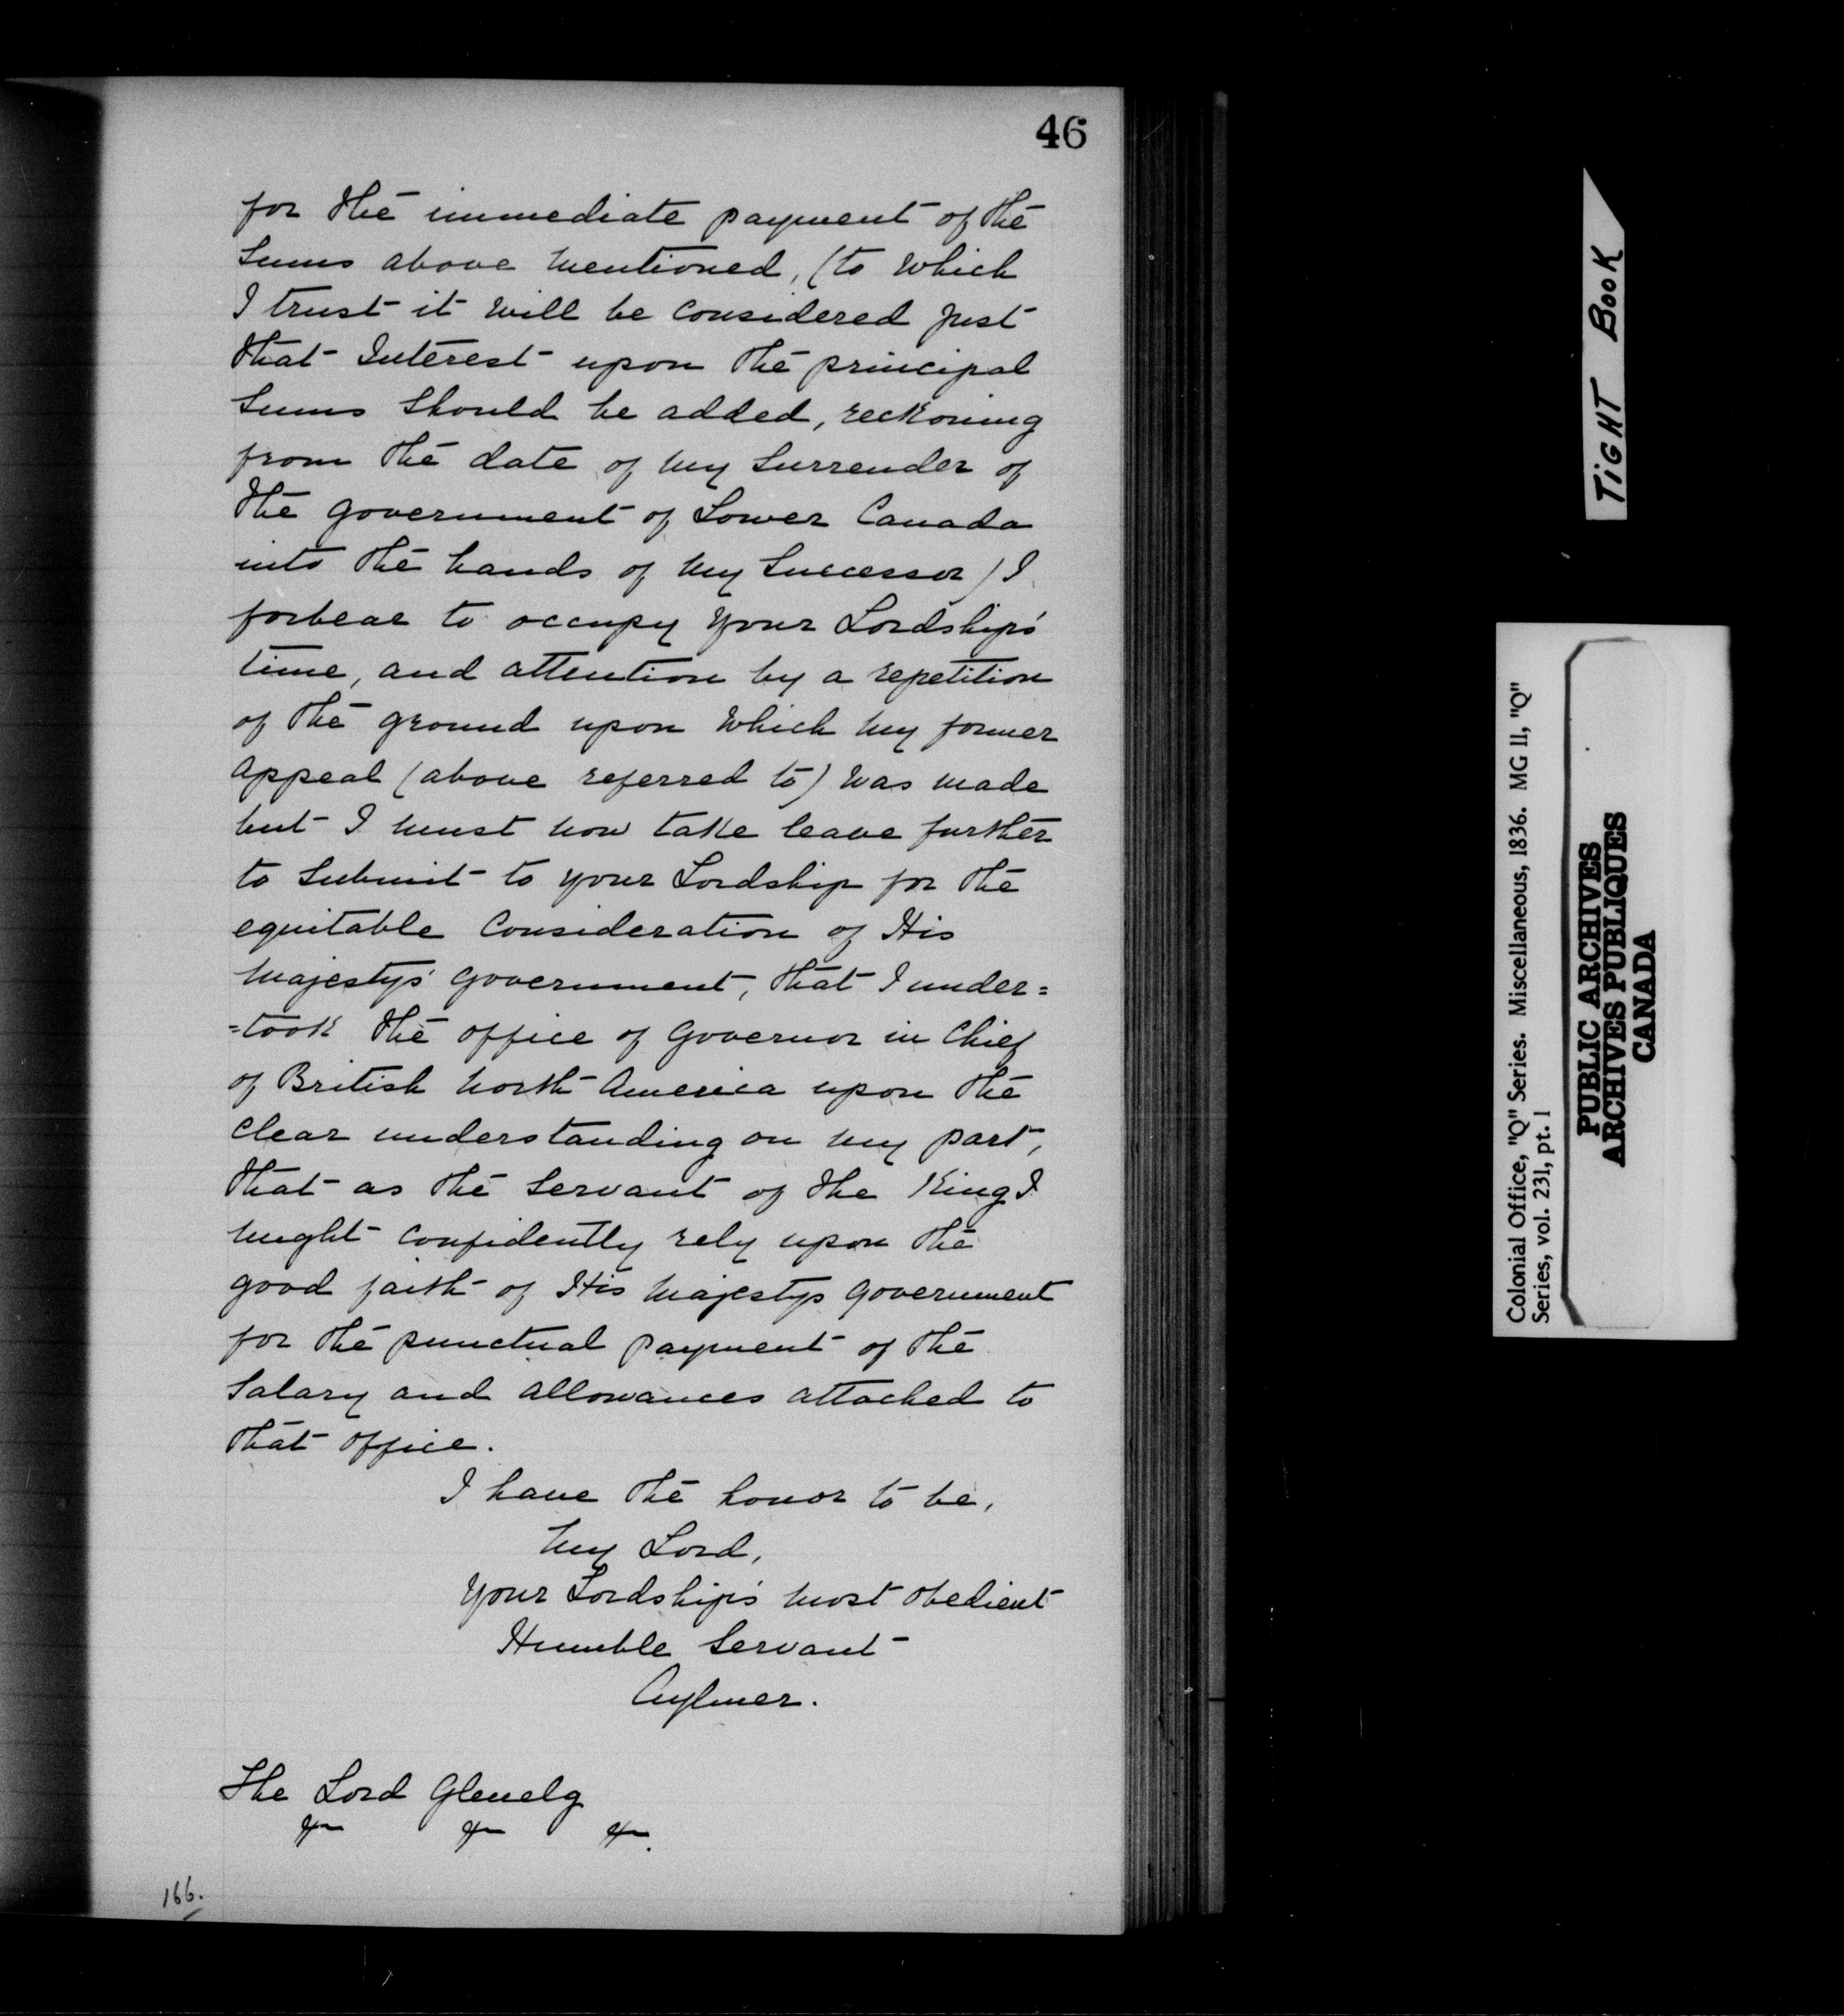 46
for the immediate payment of the
Sums above mentioned, (to which
I trust it will be considered just
that Interest upon the principal
Sums should be added, reckoning
from the date of my Surrender of
the Government of Lower Canada
into the hands of my Successor) I
forbear to occupy your Lordship's
time, and attention by a repetition
of the ground upon which my former
appeal (above referred to) was made
but I must now take leave further
to Submit to your Lordship for the
equitable Consideration of His
Majesty's Government, that I under=
=took the office of Governor in Chief
of British North America upon the
clear understanding on my part,
that as the Servant of the King I
might confidently rely upon the
good faith of His Majestys Government
for the punctual payment of the
Salary and allowances attached to
that office.
I have the honor to be,
My Lord,
Your Lordship's most obedient
Humble Servant
Aylmer.
The Lord Glenelg
&c &c &c.
166.
TIGHT BOOK
Colonial Office, "Q" Series. Miscellaneous, 1836. MG 11, "Q"
Series, vol. 231, pt. 1
PUBLIC ARCHIVES
ARCHIVES PUBLIQUES
CANADA